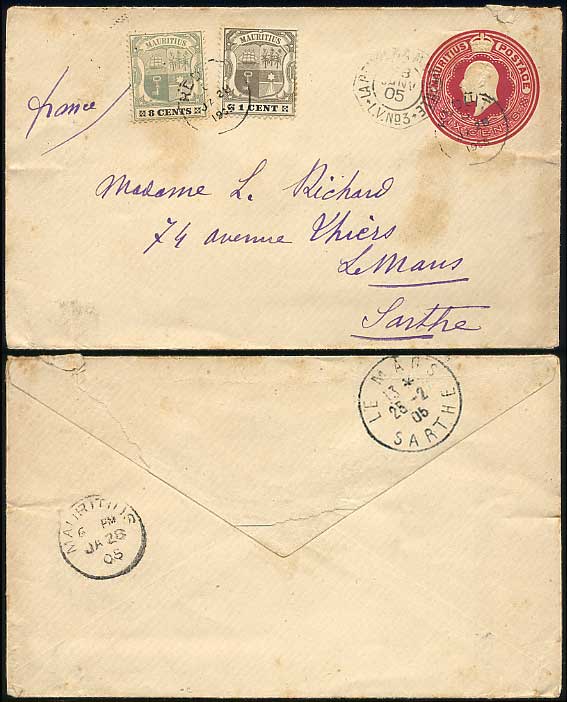 MAURITIUS
8 CENTS
MAURITIUS
1 CENT
JANV
05
L.V. No3
MAURITIUS POSTAGE
SIX CENTS
france
Madame L. Richard
74 avenue Thiers
Le Mans
Sarthe
LE MANS
13 *
25 -2
05
SARTHE
MAURITIUS
6 PM
JA 28
05